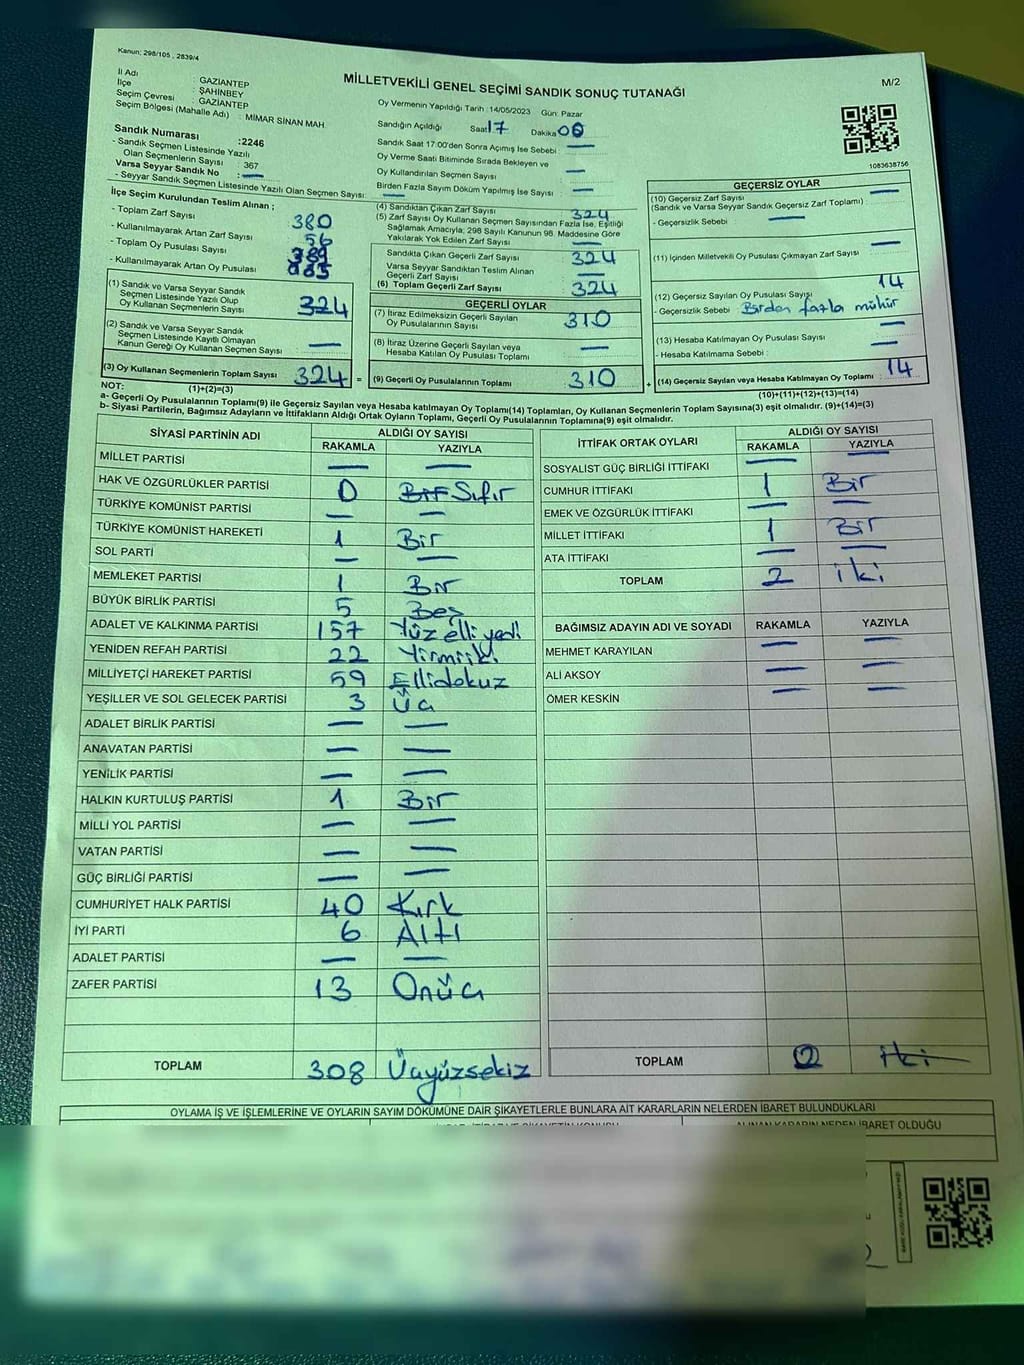 Kanun: 298/105 , 2839/4
İl Adı : GAZİANTEP
İlçe : ŞAHİNBEY
Seçim Çevresi : GAZİANTEP
Seçim Bölgesi (Mahalle Adı) : MİMAR SİNAN MAH.
MİLLETVEKİLİ GENEL SEÇİMİ SANDIK SONUÇ TUTANAĞI
M/2
Oy Vermenin Yapıldığı Tarih :14/05/2023 Gün: Pazar
Sandığın Açıldığı Saat 17 Dakika 00
Sandık Saat 17:00'den Sonra Açımış İse Sebebi : —
Oy Verme Saati Bitiminde Sırada Bekleyen ve
Oy Kullandırılan Seçmen Sayısı —
Birden Fazla Sayım Döküm Yapılmış İse Sayısı —
1083638756
Sandık Numarası :2246
- Sandık Seçmen Listesinde Yazılı
Olan Seçmenlerin Sayısı : 367
Varsa Seyyar Sandık No : —
- Seyyar Sandık Seçmen Listesinde Yazılı Olan Seçmen Sayısı: —
İlçe Seçim Kurulundan Teslim Alınan ;
- Toplam Zarf Sayısı 380
- Kullanılmayarak Artan Zarf Sayısı 56
- Toplam Oy Pusulası Sayısı
- Kullanılmayarak Artan Oy Pusulası
(1) Sandık ve Varsa Seyyar Sandık
Seçmen Listesinde Yazılı Olup
Oy Kullanan Seçmenlerin Sayısı 324
(2) Sandık ve Varsa Seyyar Sandık
Seçmen Listesinde Kayıtlı Olmayan
Kanun Gereği Oy Kullanan Seçmen Sayısı —
(3) Oy Kullanan Seçmenlerin Toplam Sayısı 324 =
(4) Sandıktan Çıkan Zarf Sayısı 324
(5) Zarf Sayısı Oy Kullanan Seçmen Sayısından Fazla İse, Eşitliği
Sağlamak Amacıyla; 298 Sayılı Kanunun 98. Maddesine Göre
Yakılarak Yok Edilen Zarf Sayısı —
Sandıkta Çıkan Geçerli Zarf Sayısı 324
Varsa Seyyar Sandıktan Teslim Alınan
Geçerli Zarf Sayısı —
(6) Toplam Geçerli Zarf Sayısı 324
GEÇERLİ OYLAR
(7) İtiraz Edilmeksizin Geçerli Sayılan
Oy Pusulalarının Sayısı 310
(8) İtiraz Üzerine Geçerli Sayılan veya
Hesaba Katılan Oy Pusulası Toplamı —
(9) Geçerli Oy Pusulalarının Toplamı 310 +
GEÇERSİZ OYLAR
(10) Geçersiz Zarf Sayısı —
(Sandık ve Varsa Seyyar Sandık Geçersiz Zarf Toplamı)
- Geçersizlik Sebebi —
(11) İçinden Milletvekili Oy Pusulası Çıkmayan Zarf Sayısı —
(12) Geçersiz Sayılan Oy Pusulası Sayısı 14
- Geçersizlik Sebebi Birden fazla mühür
(13) Hesaba Katılmayan Oy Pusulası Sayısı —
- Hesaba Katılmama Sebebi : —
(14) Geçersiz Sayılan veya Hesaba Katılmayan Oy Toplamı 14
(10)+(11)+(12)+(13)=(14)
NOT: (1)+(2)=(3)
a- Geçerli Oy Pusulalarının Toplamı(9) ile Geçersiz Sayılan veya Hesaba katılmayan Oy Toplamı(14) Toplamları, Oy Kullanan Seçmenlerin Toplam Sayısına(3) eşit olmalıdır. (9)+(14)=(3)
b- Siyasi Partilerin, Bağımsız Adayların ve İttifakların Aldığı Ortak Oyların Toplamı, Geçerli Oy Pusulalarının Toplamına(9) eşit olmalıdır.
SİYASİ PARTİNİN ADI ALDIĞI OY SAYISI
RAKAMLA YAZIYLA
MİLLET PARTİSİ — —
HAK VE ÖZGÜRLÜKLER PARTİSİ 0 Bir Sıfır
TÜRKİYE KOMÜNİST PARTİSİ — —
TÜRKİYE KOMÜNİST HAREKETİ 1 Bir
SOL PARTİ — —
MEMLEKET PARTİSİ 1 Bir
BÜYÜK BİRLİK PARTİSİ 5 Beş
ADALET VE KALKINMA PARTİSİ 157 Yüz elli yedi
YENİDEN REFAH PARTİSİ 22 Yirmiiki
MİLLİYETÇİ HAREKET PARTİSİ 59 Ellidokuz
YEŞİLLER VE SOL GELECEK PARTİSİ 3 Üç
ADALET BİRLİK PARTİSİ — —
ANAVATAN PARTİSİ — —
YENİLİK PARTİSİ — —
HALKIN KURTULUŞ PARTİSİ 1 Bir
MİLLİ YOL PARTİSİ — —
VATAN PARTİSİ — —
GÜÇ BİRLİĞİ PARTİSİ — —
CUMHURİYET HALK PARTİSİ 40 Kırk
İYİ PARTİ 6 Altı
ADALET PARTİSİ — —
ZAFER PARTİSİ 13 Onüç
TOPLAM 308 Üçyüzsekiz
İTTİFAK ORTAK OYLARI ALDIĞI OY SAYISI
RAKAMLA YAZIYLA
SOSYALİST GÜÇ BİRLİĞİ İTTİFAKI — —
CUMHUR İTTİFAKI 1 Bir
EMEK VE ÖZGÜRLÜK İTTİFAKI — —
MİLLET İTTİFAKI 1 Bir
ATA İTTİFAKI — —
TOPLAM 2 iki
BAĞIMSIZ ADAYIN ADI VE SOYADI RAKAMLA YAZIYLA
MEHMET KARAYILAN — —
ALİ AKSOY — —
ÖMER KESKİN — —
TOPLAM iki
OYLAMA İŞ VE İŞLEMLERİNE VE OYLARIN SAYIM DÖKÜMÜNE DAİR ŞİKAYETLERLE BUNLARA AİT KARARLARIN NELERDEN İBARET BULUNDUKLARI
ALINAN KARARIN NEDEN İBARET OLDUĞU